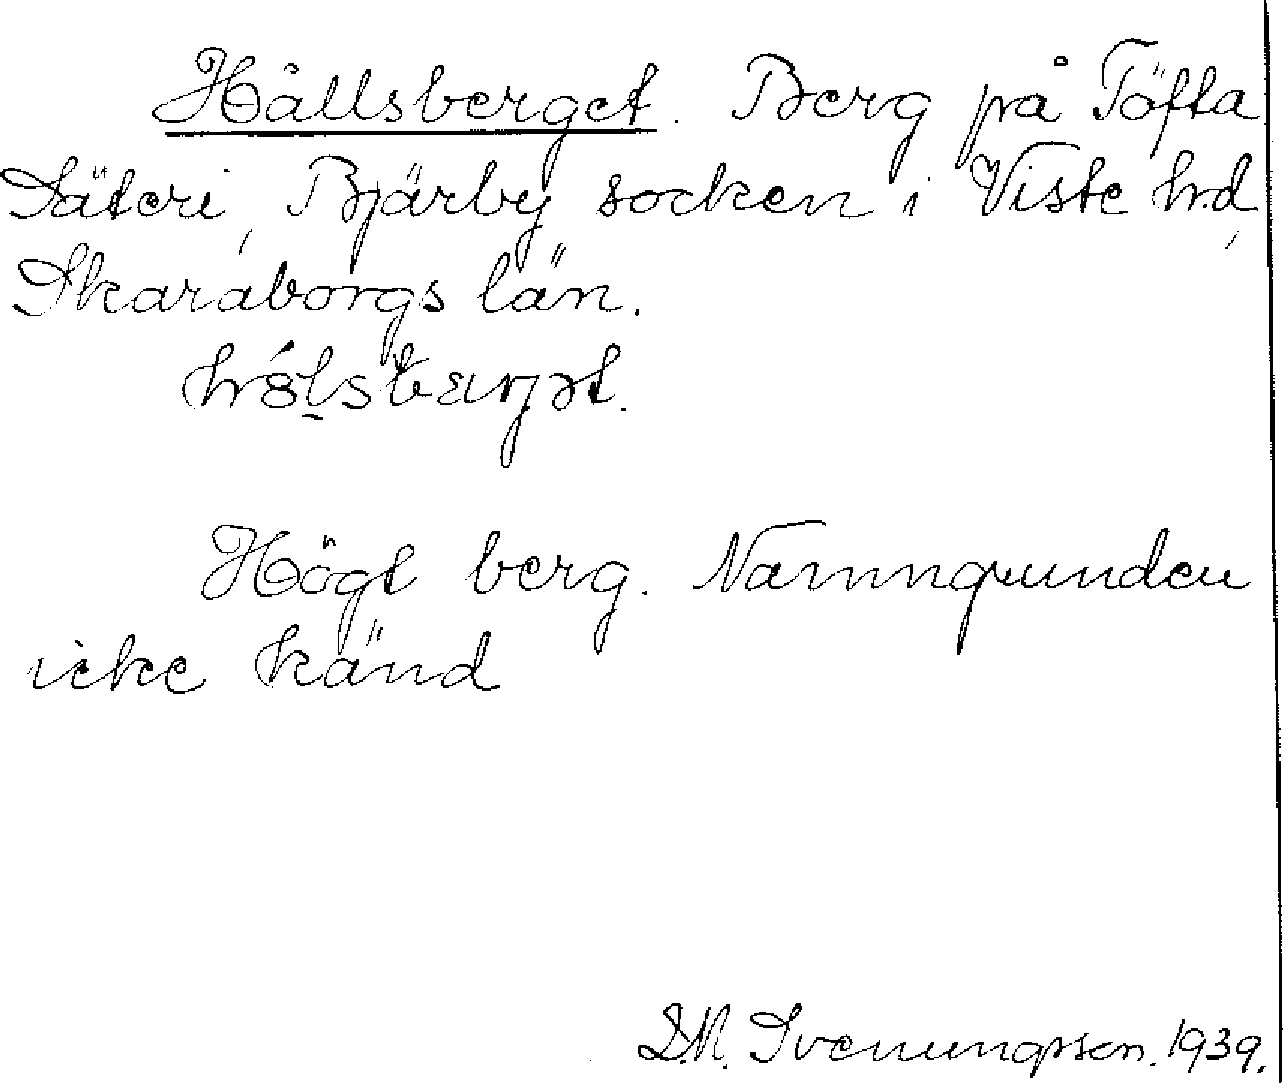 Hållsberget. Berg på Töfta
Säteri, Bjärby socken i Viste hrd,
Skaraborgs län.
Högt berg. Namngrunden
icke känd
S.M. Svenungsson. 1939.